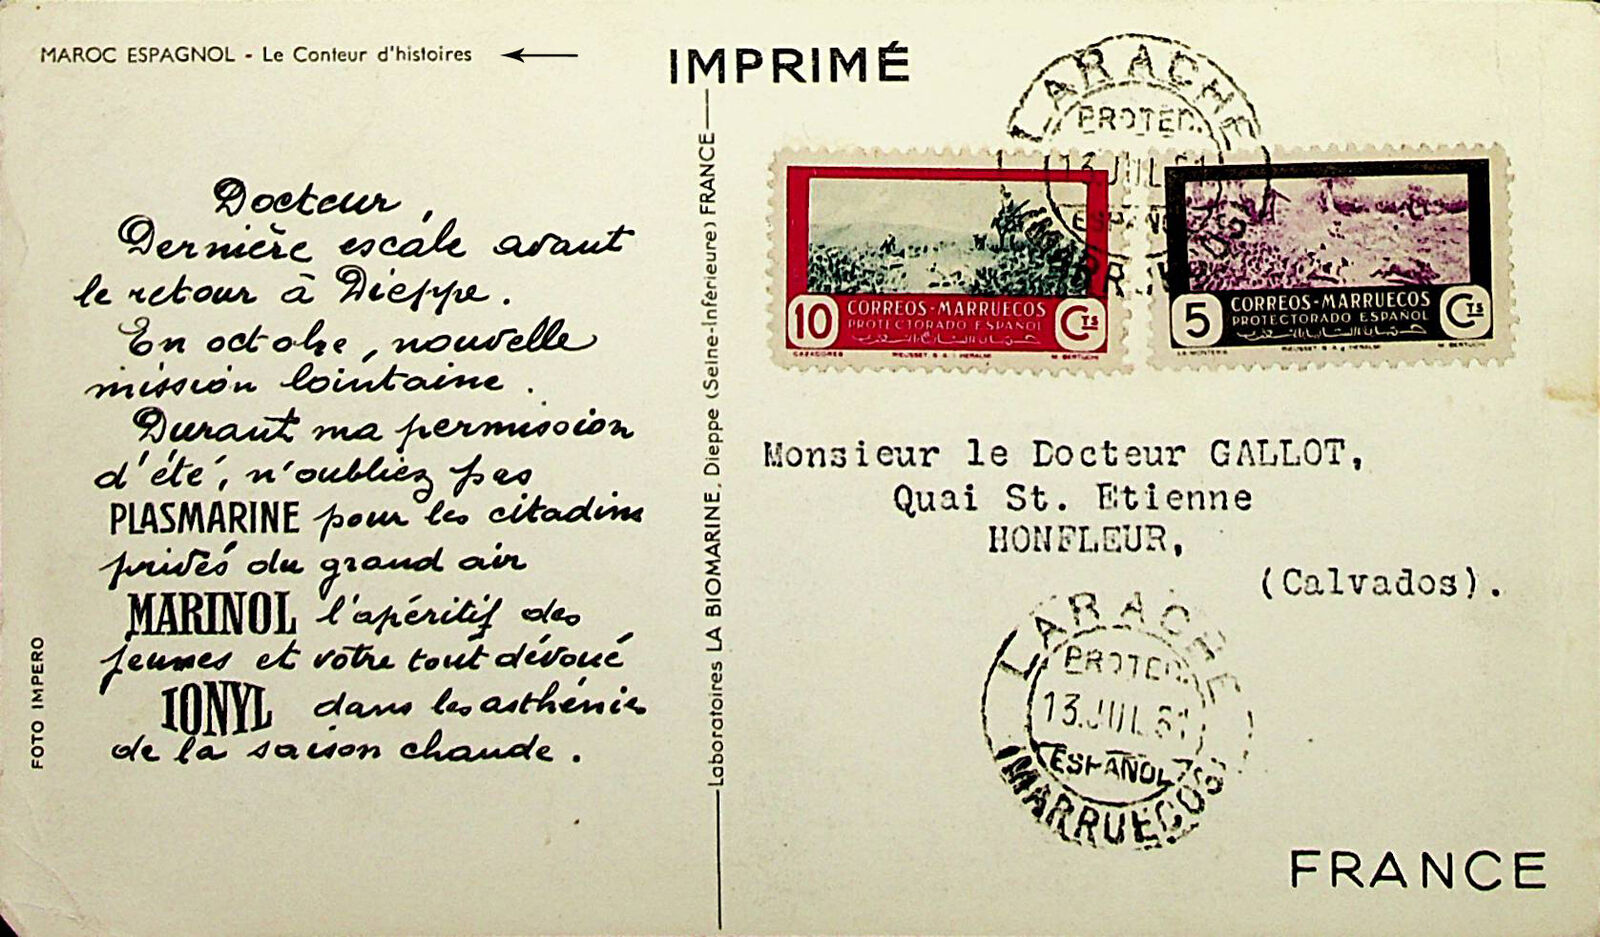 MAROC ESPAGNOL - Le Conteur d'histoires
IMPRIMÉ
Docteur,
Dernière escale avant
le retour à Dieppe.
En octobre, nouvelle
mission lointaine.
Durant ma permission
d'été, n'oubliez pas
PLASMARINE pour les citadins
privés du grand air
MARINOL l'apéritif des
jeunes et votre tout dévoué
IONYL dans les asthénies
de la saison chaude.
FOTO IMPERO
Laboratoires LA BIOMARINE, Dieppe (Seine-Inférieure) FRANCE
LARACHE
PROTEC.
13 JUL
ESPAÑOL
MARRUECOS
10 CORREOS-MARRUECOS CTS
PROTECTORADO ESPAÑOL
CAZADORES M. BERTUCHI
5 CORREOS-MARRUECOS CTS
PROTECTORADO ESPAÑOL
LA MONTERIA M. BERTUCHI
Monsieur le Docteur GALLOT,
Quai St. Etienne
HONFLEUR,
(Calvados).
LARACHE
PROTEC.
13.JUL.51
ESPAÑOL
(MARRUECOS)
FRANCE